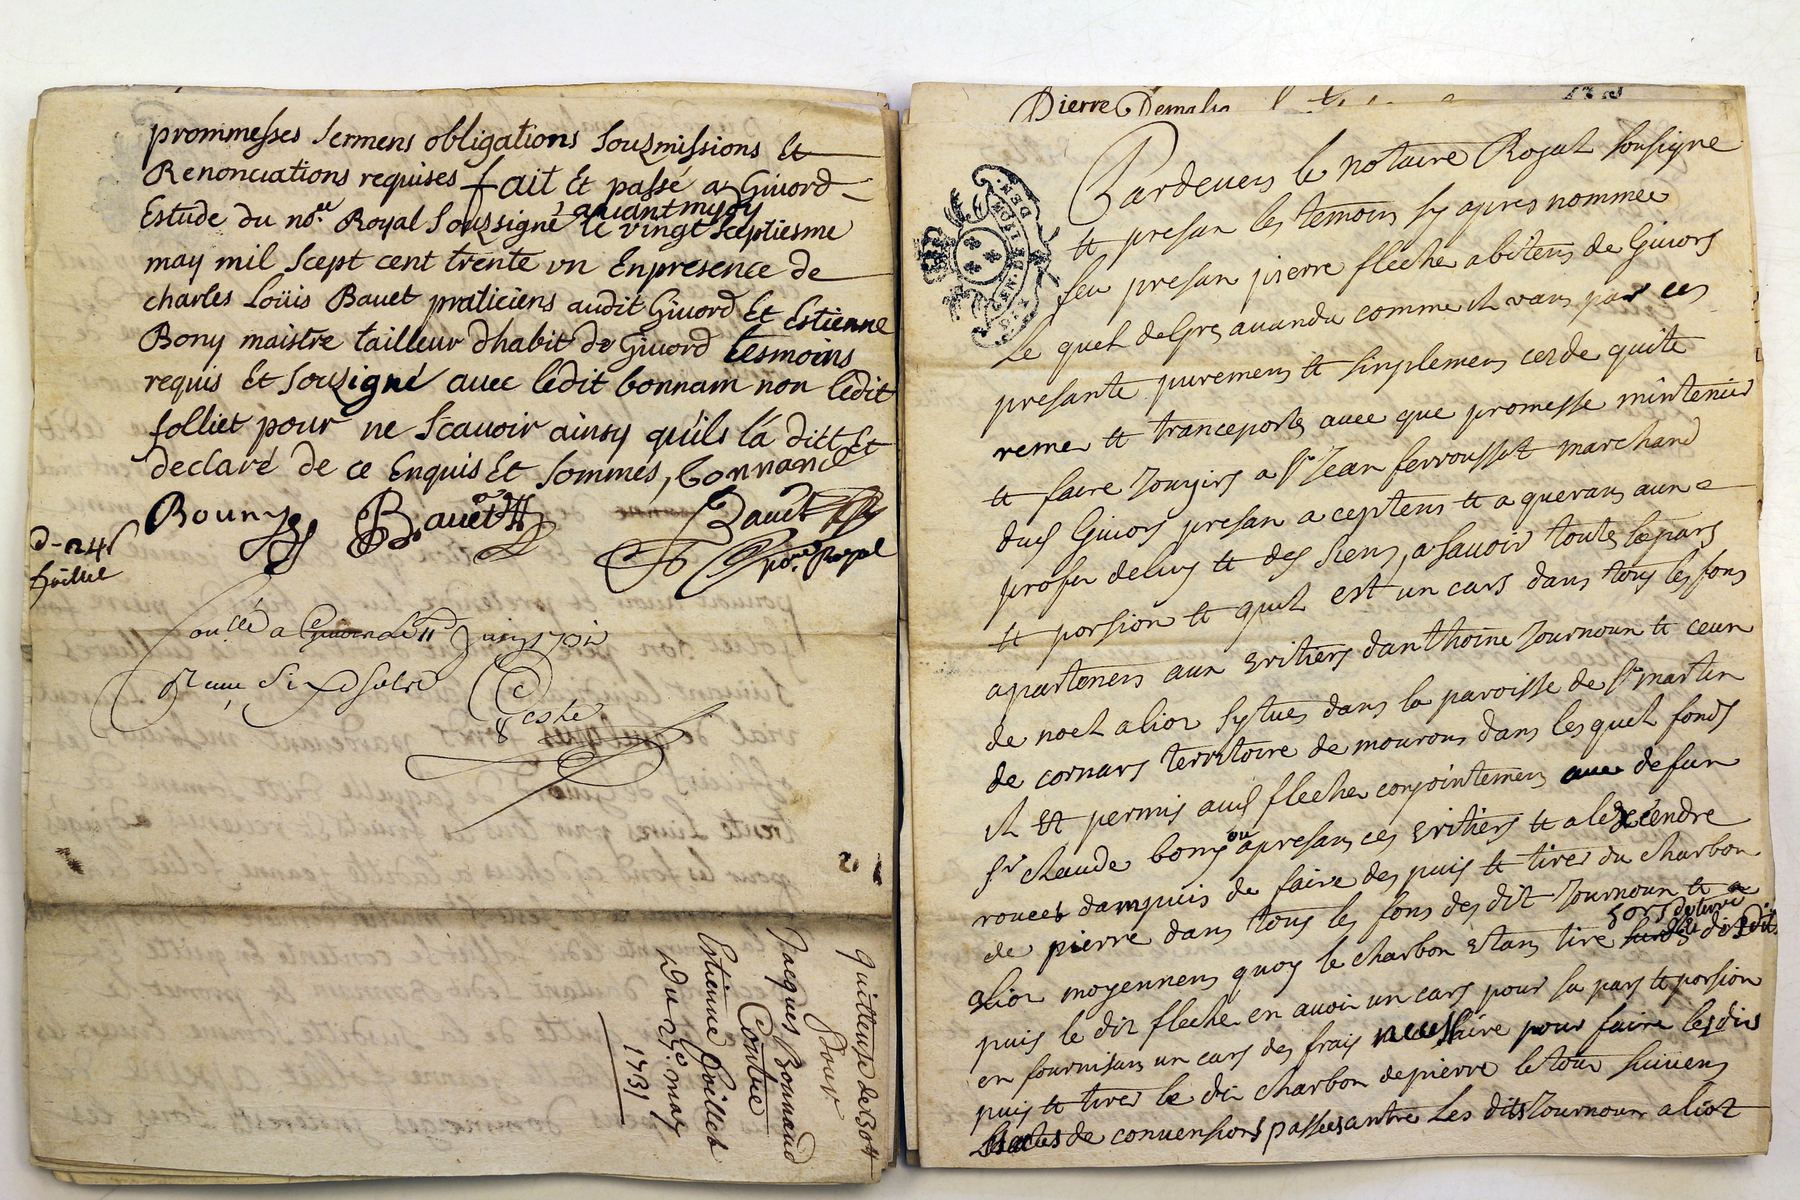 prommesses sermens obligations souzmissions Et
Renonciations requises fait Et passé a Givord
Estude du nore. Royal Souzsigné avant mydy le vingt sceptiesme
may mil scept cent trente un Enpresence de
charles Loüis Bavet praticiens audit Givord Et Estienne
Bony maistre tailleur dhabit de Givord tesmoins
requis Et souzsigné avec ledit bonnam non ledit
folliet pour ne scavoir ainsy quils la ditt Et
declaré de ce Enquis Et sommés, bonnand
Bouny Bavet Bavet
nore. Royal
a Givord le 11e Juin 1731
Reçu six s
Quittense de 30 lt
Pour
Jacques Bonnaud
Contre
Estienne foillet
Du 27e. may
1731
Pierre Demalio
Pardevers le notaire Royal sousigne
tt presan les temoins sy apres nommee
feu presan pierre fleche abitens de Givors
le quel de Gre a vandu comme il vans par ces
presante puremens tt sinplemens cesde quite
reme tt tranceporte avec que promesse mintenir
tt faire Jouyirs a sr Jean ferrousset marchand
dud Givors presan aceptens tt aquerans aun
profer deluy tt des siens, a savoir toutes le pars
tt porsion tt quil est un cars dans tous les fons
apartenens aun eritiers danthoine Journoun tt ceun
de noel alior sytues dans la paroisse de st martin
de cornars territoire de mourous dans lesquel fonds
il Et permis aud fleche conjointemens avec defun
sr claude bony ou apresans ces eritiers tt alexcendre
roucet dampuis de faire des puis tt tirer du charbon
de pierre dans tous les fons des dit Journoun tt a
alior moyennens quoy le charbon Etans tire hors de terre du dit
puis le dit fleche en avoir un cars pour sa pars tt porsion
en fournisans un cars des frais necessaire pour faire lesdis
puis tt tirer le dit charbon de pierre le tout suivens
les actes de convensions passées antre les dits Journoun aliot